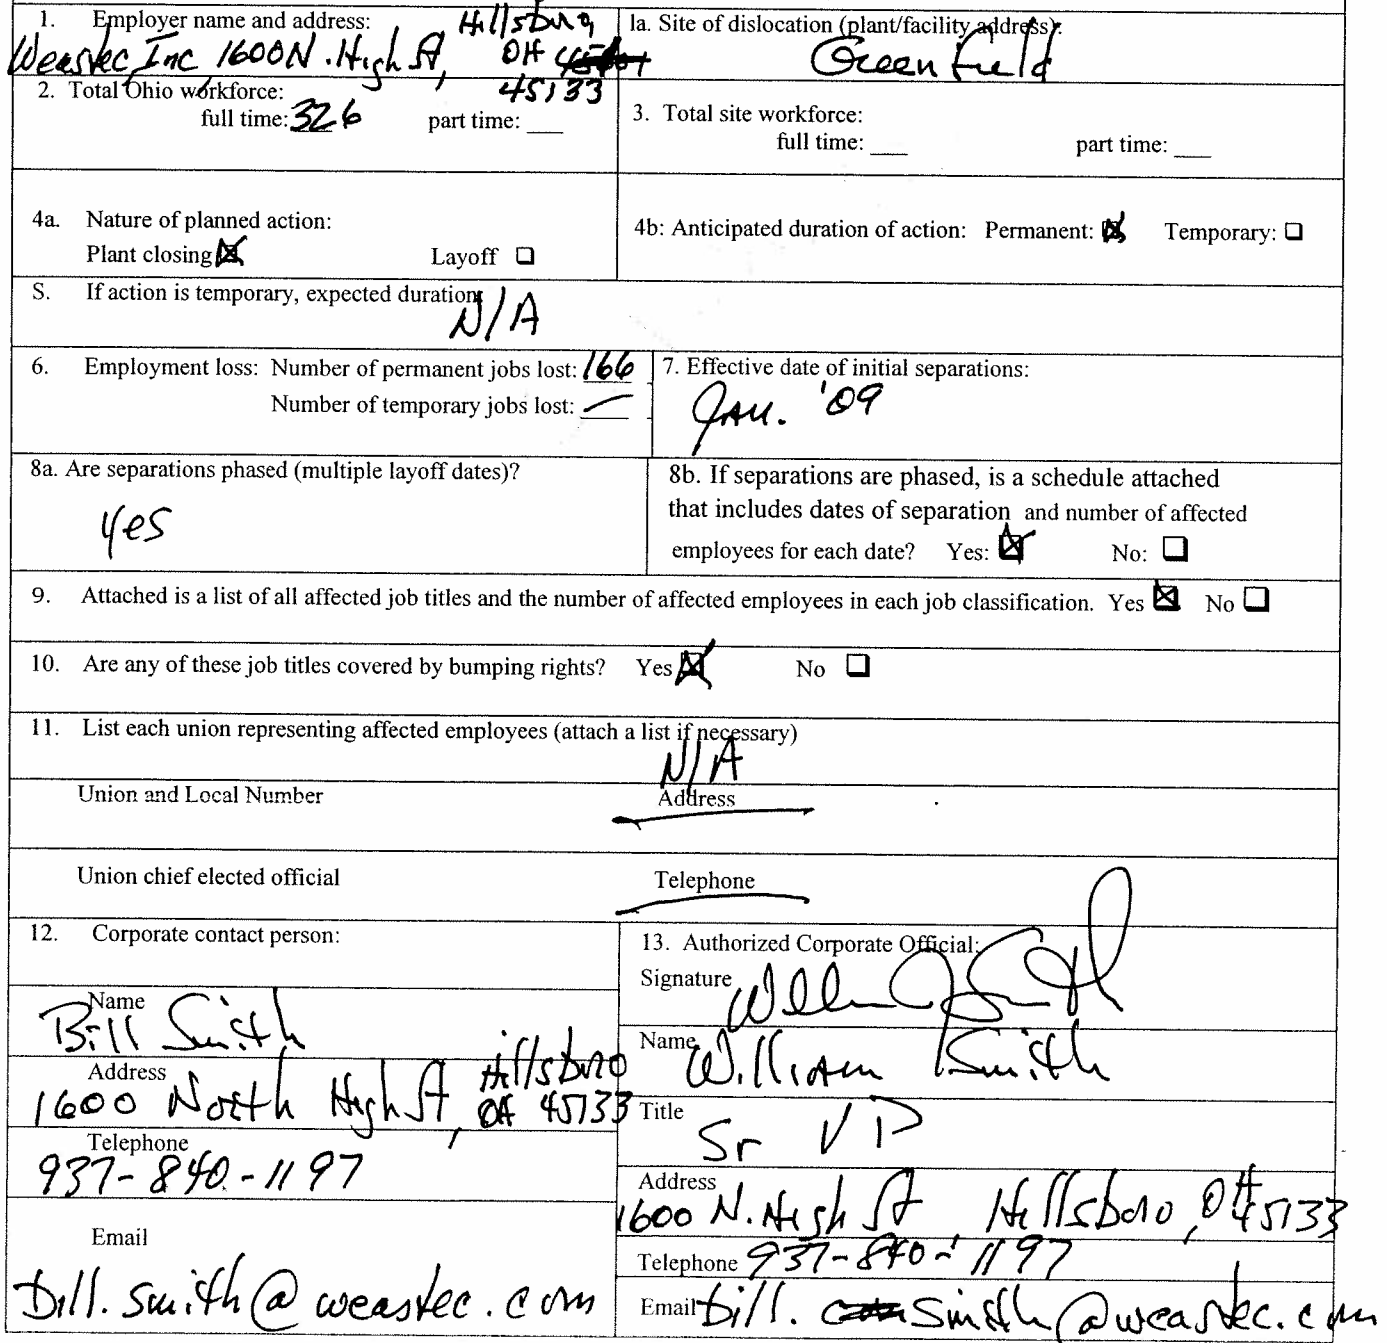 1. Employer name and address: Hillsboro
Weastec, Inc 1600 N. High St, OH
45133
1a. Site of dislocation (plant/facility address):
Greenfield
2. Total Ohio workforce:
full time: 326 part time: ___
3. Total site workforce:
full time: ___ part time: ___
4a. Nature of planned action:
Plant closing ☒ Layoff ☐
4b: Anticipated duration of action: Permanent: ☒ Temporary: ☐
S. If action is temporary, expected duration:
N/A
6. Employment loss: Number of permanent jobs lost: 166
Number of temporary jobs lost: —
7. Effective date of initial separations:
Jan. '09
8a. Are separations phased (multiple layoff dates)?
yes
8b. If separations are phased, is a schedule attached
that includes dates of separation and number of affected
employees for each date? Yes: ☒ No: ☐
9. Attached is a list of all affected job titles and the number of affected employees in each job classification. Yes ☒ No ☐
10. Are any of these job titles covered by bumping rights? Yes ☒ No ☐
11. List each union representing affected employees (attach a list if necessary)
N/A
Union and Local Number Address
Union chief elected official Telephone
12. Corporate contact person:
Name
Bill Smith
Address
1600 North High St, Hillsboro
OH 45133
Telephone
937-840-1197
Email
bill.smith@weastec.com
13. Authorized Corporate Official:
Signature William J Smith
Name William Smith
Title
Sr VP
Address
1600 N. High St Hillsboro, OH 45133
Telephone 937-840-1197
Email bill. smith@weastec.com